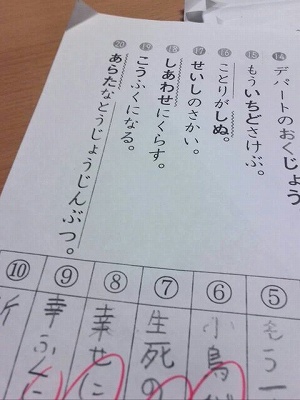 ⑭デパートのおくじょう
⑮もういちどさけぶ。
⑯ことりがしぬ。
⑰せいしのさかい。
⑱しあわせにくらす。
⑲こうふくになる。
⑳あらたなとうじょうじんぶつ。
⑤もう一
⑥小鳥が
⑦生死の
⑧幸せに
⑨幸ふくに
⑩